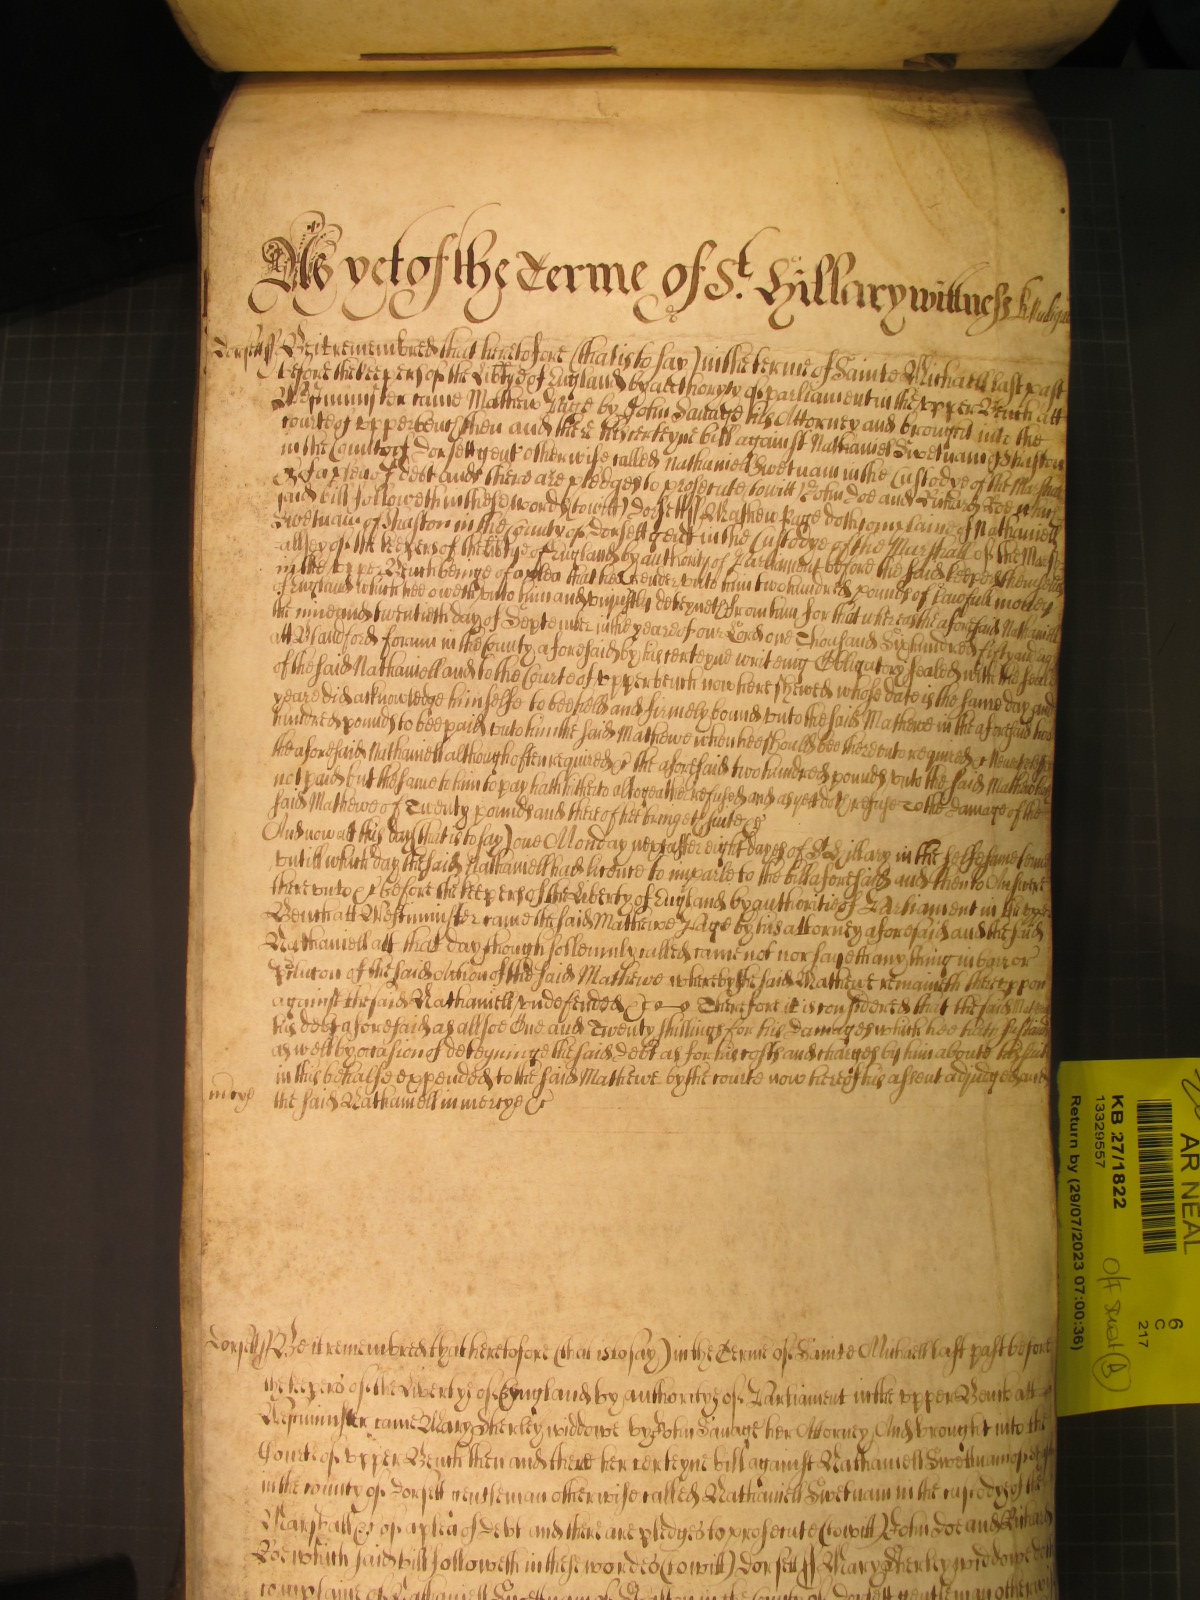 As yet of the Terme of St. Hillary wittnes
Dorsett ss Be it remembred that heretofore (that is to say) in the terme of Sainte Michaell last past
before the keepers of the Libtye of England by aucthoryty of parliament in the upper Bench att
Westminster came Mathew Page by John Savage his Attorney and brought into the
courte of upperbench then and there his certeyne bill against Nathaniel Swetnam of Shaston
in the County of Dorsett gent otherwise called Nathaniel Swetnam in the Custodye of the Marshall
&c of a plea of debt and there are pledges to prosecute towitt John Doe and Richard Roe which
said bill followeth in these wordes towitt) Dorsett ss Mathew Page doth complaine of Nathaniell
Swetnam of Shaston in the County of Dorsett gent in the Custodye of the Marshall of the Marsh
allsey of the keepers of the libtye of England by authority of Parliament before the said keepers themselves
in the upper Bench beinge of a plea that he render unto him two hundred pounds of lawfull money
of England which hee oweth unto him and unjustly deteyneth from him for that whereas the aforesaid Nathaniell
the nine and twentieth day of September in the yeare of our Lord one Thousand Six hundred fifty and
att Blandford forum in the County aforesaid by his certeyne writeing Obligatory sealed with the seale
of the said Nathaniell and to the Courte of upper bench now here shewed whose date is the same day and
yeare did acknowledge himselfe to bee held and firmely bound unto the said Mathewe in the aforesaid two
hundred pounds to bee paid unto him the said Mathewe when hee should bee thereunto required Neverthelesse
the aforesaid Nathaniell although often required &c the aforesaid two hundred pounds unto the said Mathew hath
not paid but the same to him to pay hath hitherto altogeather refused and as yet doth refuse To the damage of the
said Mathewe of Twenty pounds and thereof he bringeth suite &c
And now att this day (that is to say) one Monday next after eight dayes of St Hillary in the selfe same terme
untill which day the said Nathaniell had licence to imparle to the bill aforesaid and then to Answere
thereunto &c before the keepers of the Liberty of England by authoritie of Parliament in the upper
Bench att Westminster came the said Mathewe Page by his attorney aforesaid and the said
Nathaniell att that day though sollemnly called came not nor sayeth any thing in barr or
preclucon of the said accion of the said Mathewe whereby the said Mathewe remaineth thereupon
against the said Nathaniell undefended &c Therefore it is considered that the said Mathewe
his debt aforesaid as allsoe One and Twenty shillings for his damages which hee hath sustained
as well by occasion of deteyninge the said Debt as for his costs and charges by him aboute his suit
in this behalfe expended to the said Mathewe by the courte now here of his assent adjudged and
mercy the said Nathaniell in mercye &c
Dorsett ss Be it remembred that heretofore (that is to say) in the Terme of Sainte Michaell last past before
the keepers of the Libertye of England by authoritye of Parliament in the upper Bench att
Westminster came Mary Sherley widdowe by John Savage her Attorney And brought into the
Courte of upper Bench then and there her certeyne bill against Nathaniell Swettnam of
in the county of Dorsett gentleman otherwise called Nathaniell Swetnam in the custodye of the
Marshall &c of a plea of Debt and there are pledges to prosecute (towitt) John Doe and Richard
Roe which said bill followeth in these wordes (towitt) Dorsett ss Mary Sherley widdowe doth
complaine of Nathaniell Swetnam of Shaston in the county of Dorsett gentleman otherwise
AR NEAL
6
C
217
KB 27/1822
13329557
Return by (29/07/2023 07:00:36)